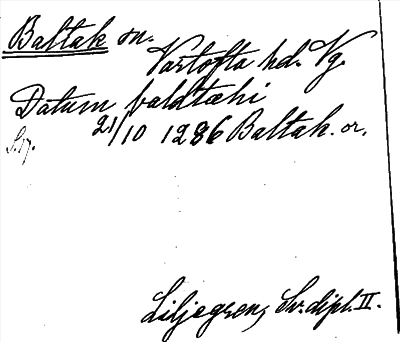 Baltak sn.
Vartofta hd. Vg.
Datum baldtachi
21/10 1286 Baltak. or.
Liljegren, Sv. dipl. II.